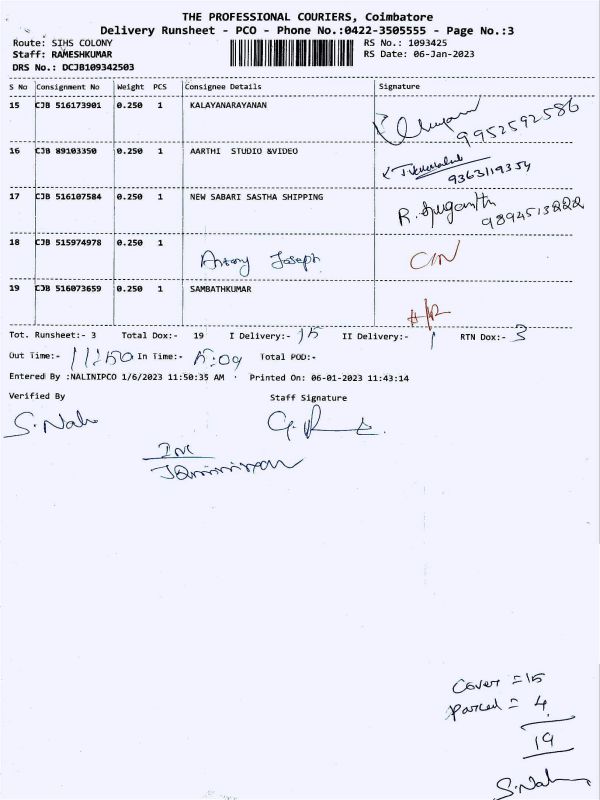 THE PROFESSIONAL COURIERS, Coimbatore
Delivery Runsheet - PCO - Phone No.:0422-3505555 - Page No.:3
Route: SIHS COLONY RS No.: 1093425
Staff: RAMESHKUMAR RS Date: 06-Jan-2023
DRS No.: DCJB109342503
S No Consignment No Weight PCS Consignee Details Signature
15 CJB 516173901 0.250 1 KALAYANARAYANAN
9952592586
16 CJB 89103350 0.250 1 AARTHI STUDIO &VIDEO
9363119354
17 CJB 516107584 0.250 1 NEW SABARI SASTHA SHIPPING R. Suganth
9894513222
18 CJB 515974978 0.250 1
Antony Joseph C/N
19 CJB 516073659 0.250 1 SAMBATHKUMAR
Tot. Runsheet:- 3 Total Dox:- 19 I Delivery:- 15 II Delivery:- 1 RTN Dox:- 3
Out Time:- 11:50 In Time:- 5:09 Total POD:-
Entered By :NALINIPCO 1/6/2023 11:50:35 AM Printed On: 06-01-2023 11:43:14
Verified By Staff Signature
S. Nali
Cover = 15
Parcel = 4
19
S. Nali